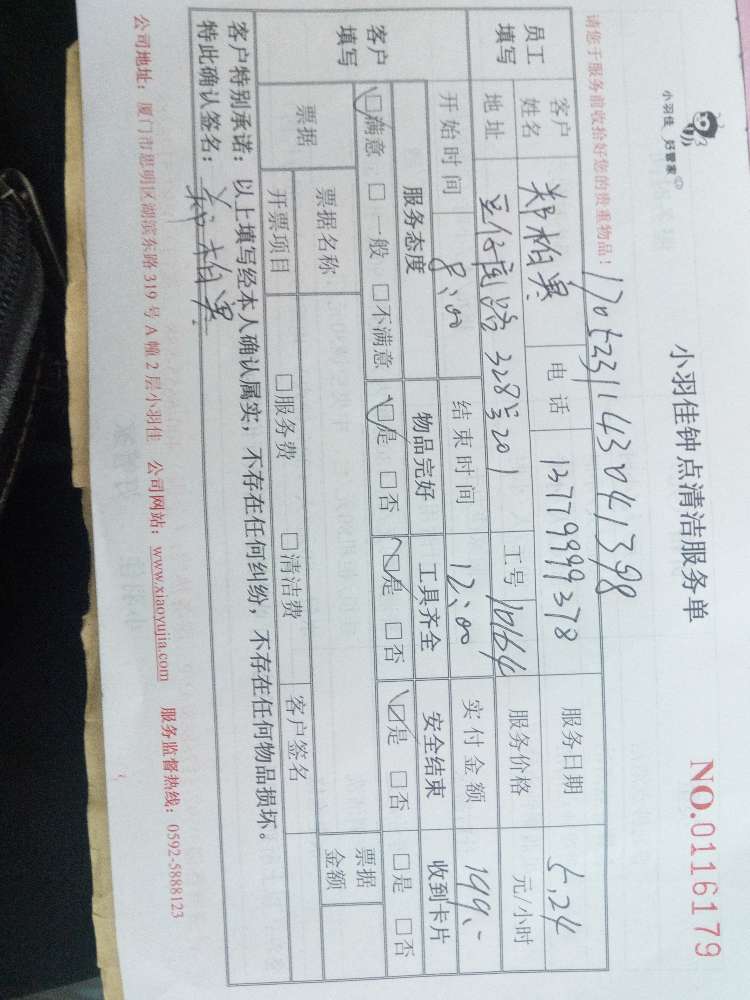 小羽佳 好管家
小羽佳钟点清洁服务单
NO.0116179
请您于服务前收拾好您的贵重物品！
员工填写 客户姓名 郑柏 电话 13779999378 服务日期 5.24
地址 328号201 工号 10164 服务价格 元/小时
开始时间 8:00 结束时间 12:00 实付金额 199.-
客户填写 服务态度 物品完好 工具齐全 安全结束 收到卡片
☑满意 □一般 □不满意 ☑是 □否 ☑是 □否 ☑是 □否 □是 □否
票据 票据名称 票据金额
开票项目 □服务费 □清洁费 客户签名
客户特别承诺：以上填写经本人确认属实，不存在任何纠纷，不存在任何物品损坏。
特此确认签名：郑柏
公司地址：厦门市思明区湖滨东路319号A幢2层小羽佳 公司网站：www.xiaoyujia.com 服务监督热线：0592-5888123